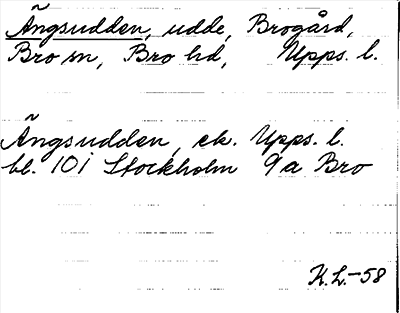 Ängsudden, udde, Brogård,
Bro sn, Bro hd, Upps. l.
Ängsudden, ek. Upps. l.
bl. 10i Stockholm 9a Bro
K.L.-58